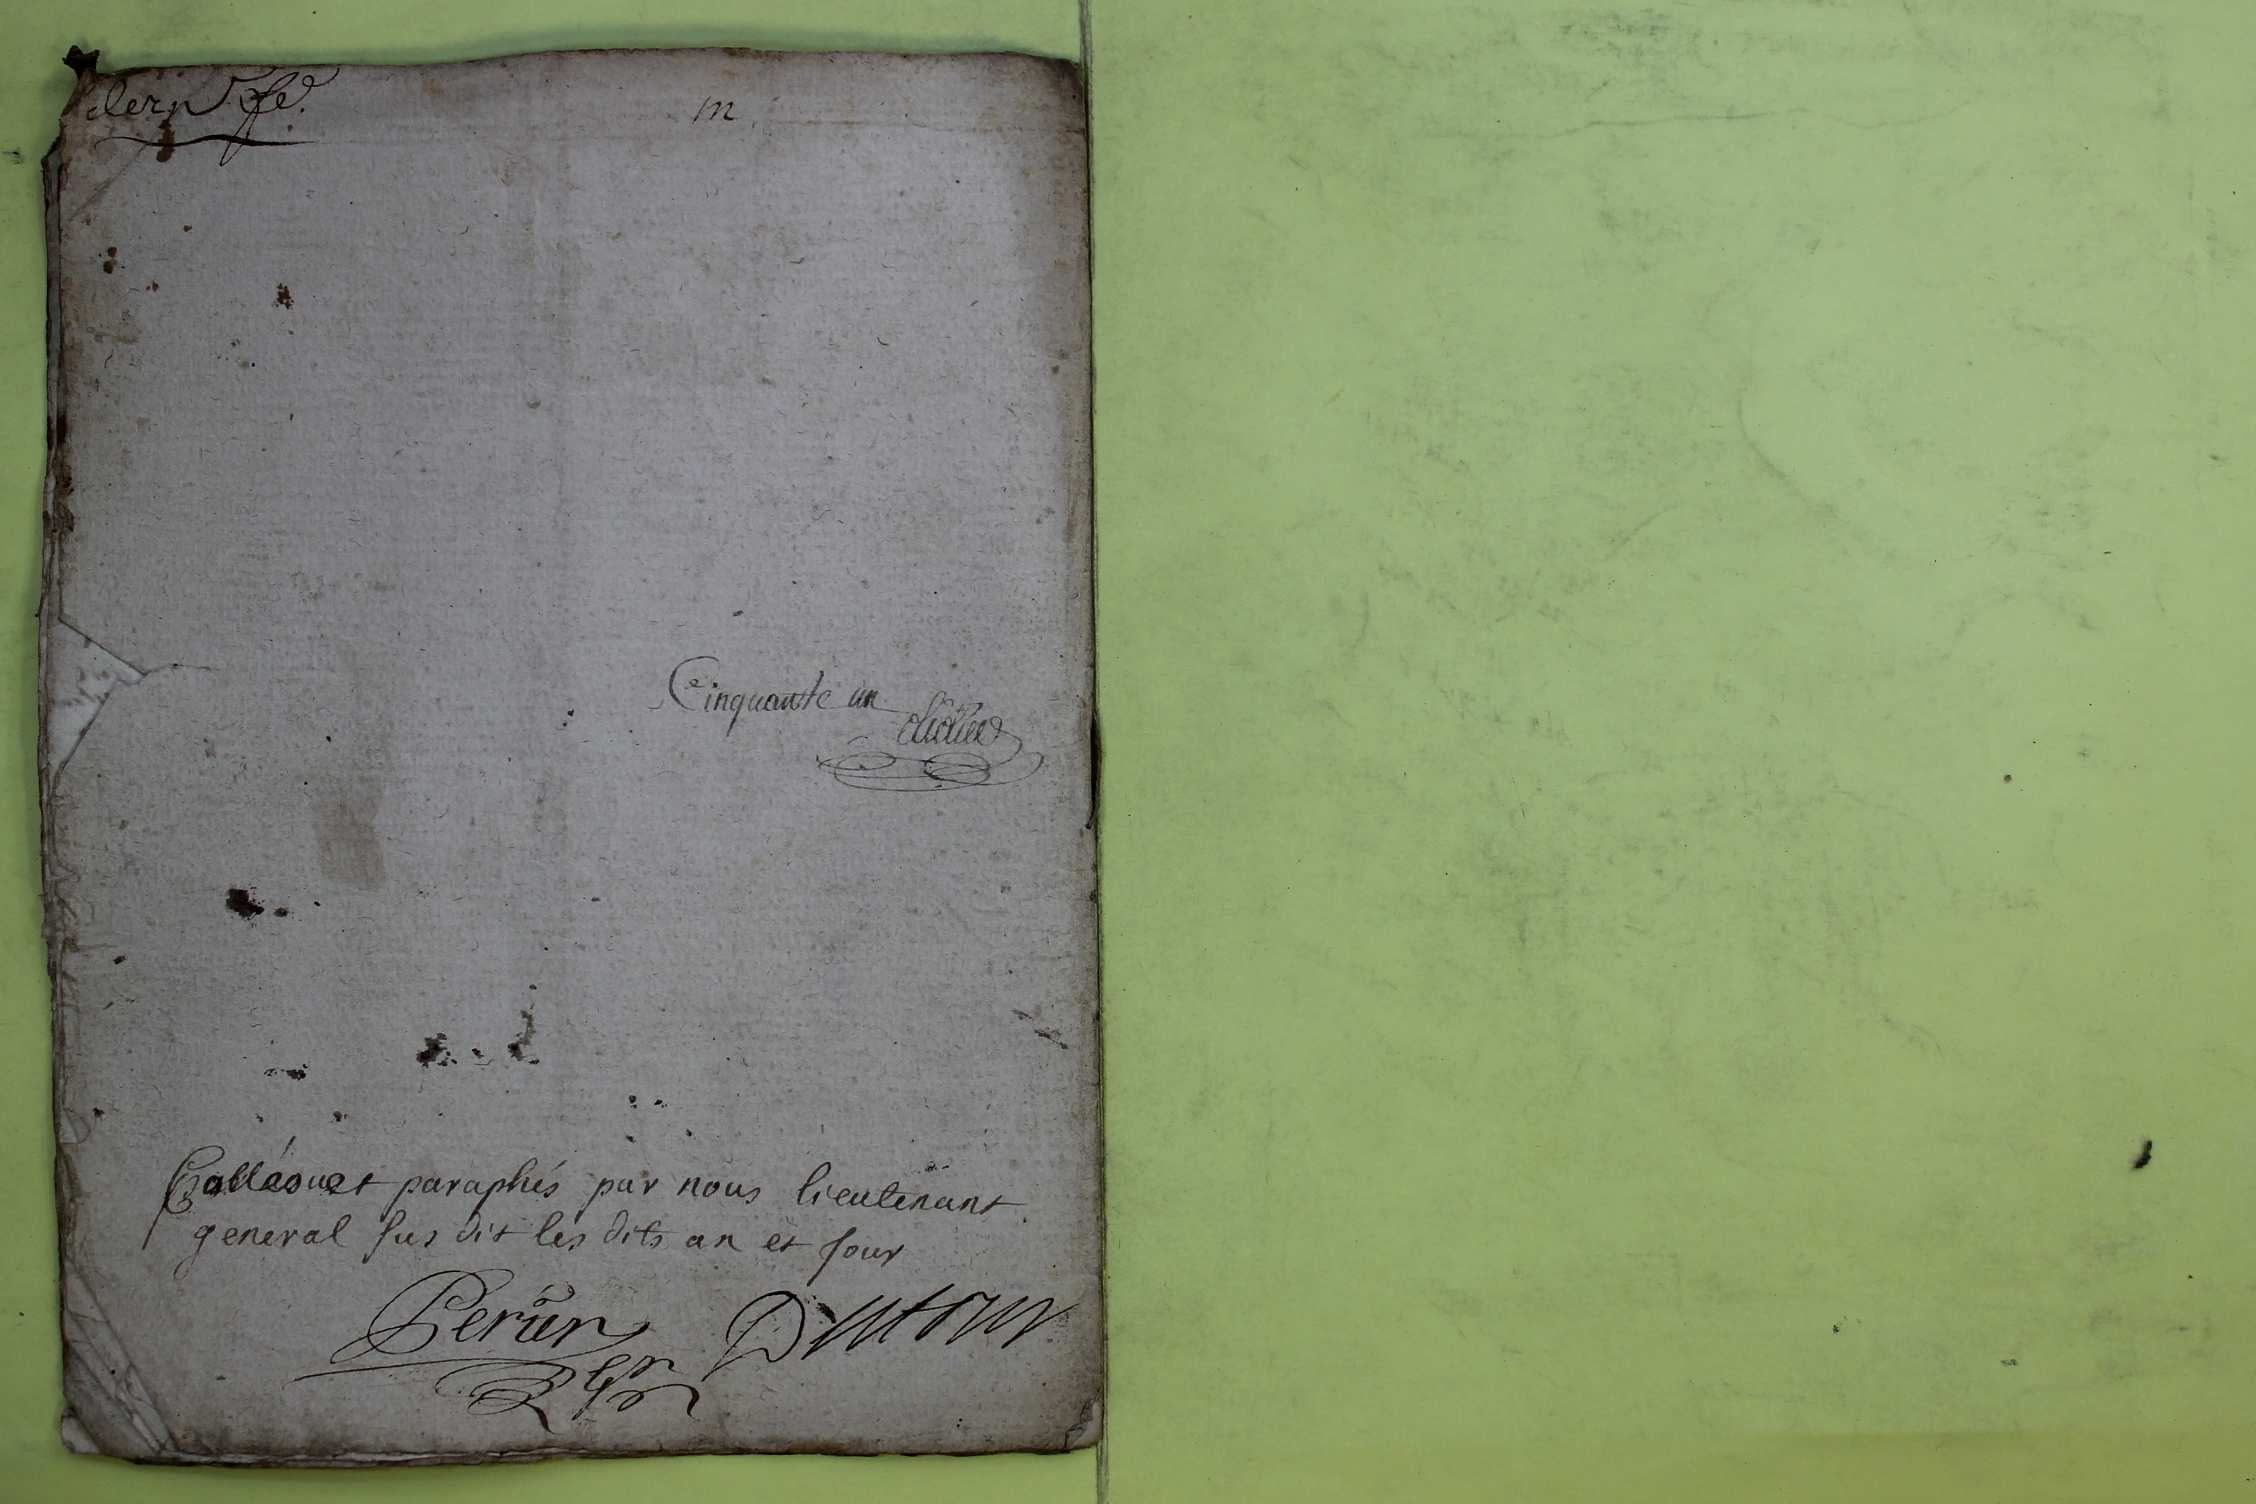 m
Cinquante un
Cottéouet paraphés par nous lieutenant
general sus dit les dits an et jour
Perier Dutour